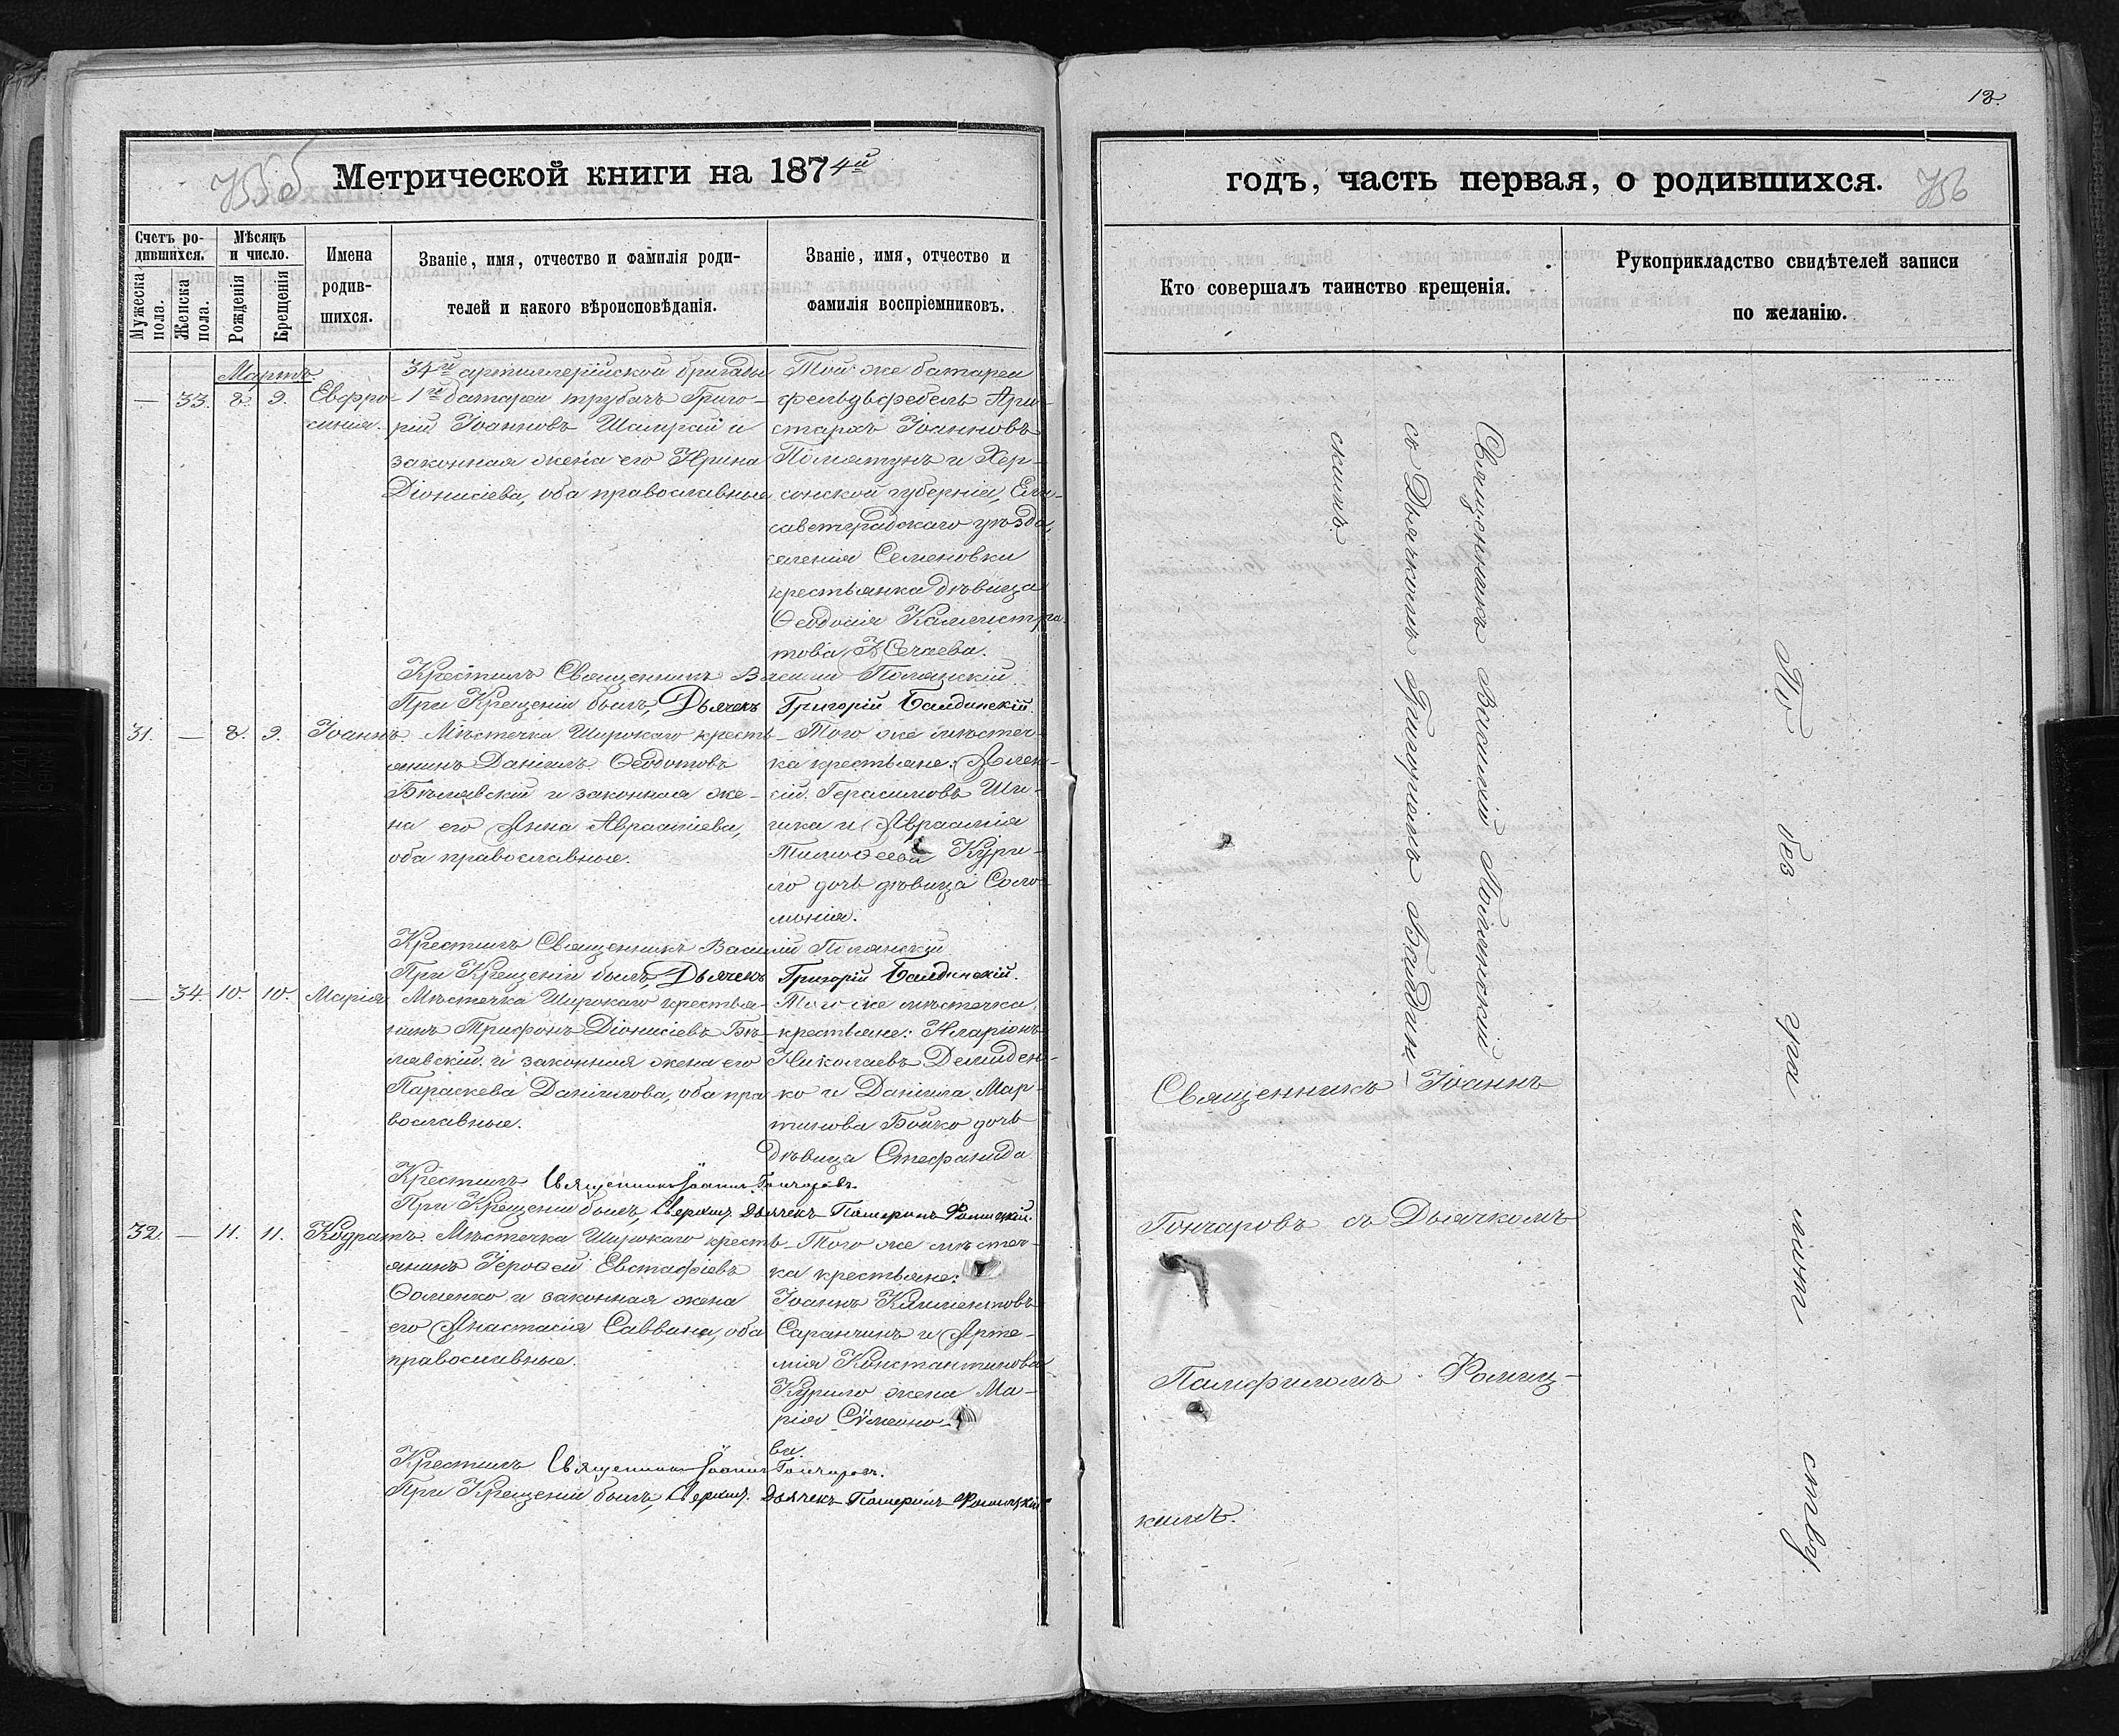 Метрической книги на 1874й
Счетъ ро-
дившихся.
Мужеска
пола.
Женска
пола.
Мѣсяцъ
и число.
Рожденія
Крещенія
Имена
родив-
шихся.
Званіе, имя, отчество и фамилія роди-
телей и какого вѣроисповѣданія.
Званіе, имя, отчество и
фамилія воспріемниковъ.
Мартъ
— 33. 8. 9. Евфро-
синія.
34й артиллерійской бригады
1й батареи трубачъ Григо-
рій Іоанновъ и
законная жена его Ирина
Діонисіева, оба православные
Той же батареи
фельдфебель Ари-
стархъ Іоанновъ
и Хер-
сонской губерніи, Ели-
саветградскаго уѣзда,
селенія Семеновки
крестьянка дѣвица
Ѳеодосія Калистра-
това
Крестилъ Священникъ Василій Полянскій
При Крещеніи былъ, Дьячекъ Григорій
31. — 8. 9. Іоаннъ.
Мѣстечка Широкаго кресть-
янинъ Даніилъ Ѳеодотовъ
Бѣлявскій и законная же-
на его Анна
оба православные.
Того же мѣстеч-
ка крестьяне: Алек-
сій Герасимовъ
и
Тимоѳеева Кури-
ло дочь дѣвица Соло-
монія.
Крестилъ Священникъ Василій Полянскій
При Крещеніи былъ, Дьячекъ Григорій
— 34. 10. 10. Марія
Мѣстечка Широкаго крестья-
нинъ Трифонъ Діонисіевъ Бѣ-
лявскій и законная жена его
Параскева Даніилова, оба пра-
вославные.
Того же мѣстечка
крестьяне: Иларіонъ
Николаевъ Демиден-
ко и Даніила Мар-
тинова Бойко дочь
дѣвица Стефанида
Крестилъ Священникъ Іоаннъ Гончаровъ.
При Крещеніи былъ, Дьячекъ
32. — 11. 11. Кодратъ.
Мѣстечка Широкаго кресть-
янинъ Іероѳей Евстафіевъ
Ѳоменко и законная жена
его Анастасія Саввина, оба
православные.
Того же мѣстеч-
ка крестьяне:
Іоаннъ Климентовъ
Саранчинъ и Арте-
мія Константинова
Курило жена Ма-
рія Сѵмеоно-
ва.
Крестилъ Священникъ Іоаннъ Гончаровъ.
При Крещеніи былъ, Дьячекъ
12.
годъ, часть первая, о родившихся.
756
Кто совершалъ таинство крещенія.
Рукоприкладство свидѣтелей записи
по желанію.
Священникъ Василій Полянскій
съ Дьячкомъ Григоріемъ
скимъ.
Священникъ Іоаннъ
Гончаровъ съ Дьячкомъ
Памфиломъ
кимъ.